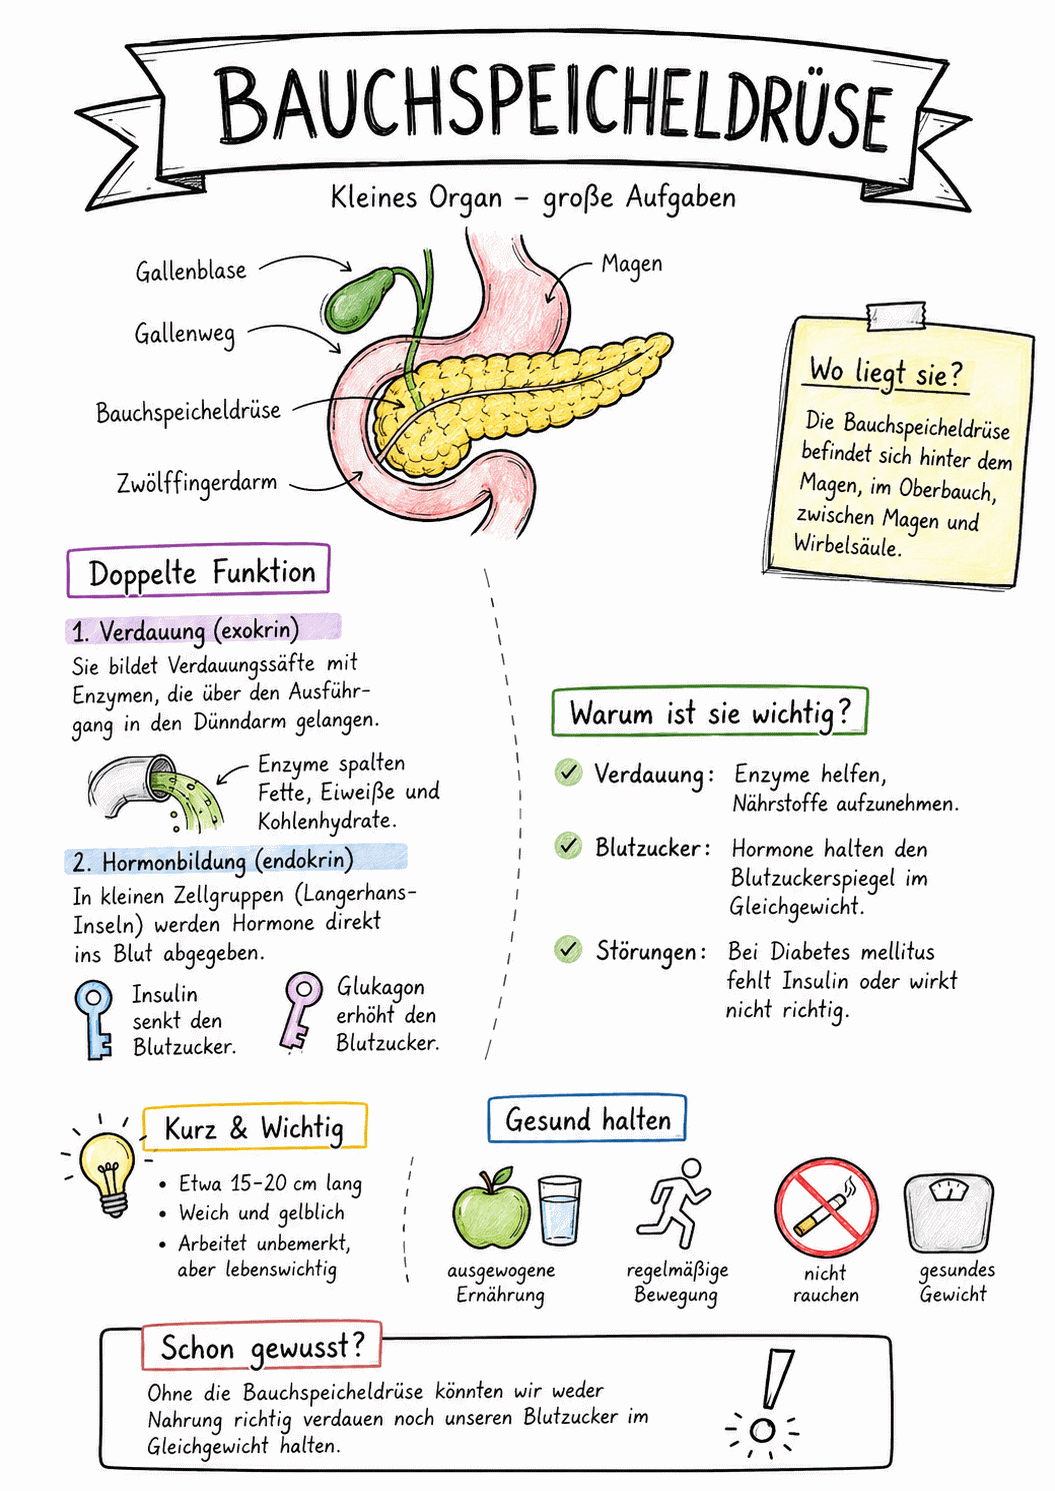 BAUCHSPEICHELDRÜSE
Kleines Organ – große Aufgaben
Gallenblase
Magen
Gallenweg
Bauchspeicheldrüse
Zwölffingerdarm
Wo liegt sie?
Die Bauchspeicheldrüse
befindet sich hinter dem
Magen, im Oberbauch,
zwischen Magen und
Wirbelsäule.
Doppelte Funktion
1. Verdauung (exokrin)
Sie bildet Verdauungssäfte mit
Enzymen, die über den Ausführ-
gang in den Dünndarm gelangen.
Enzyme spalten
Fette, Eiweiße und
Kohlenhydrate.
2. Hormonbildung (endokrin)
In kleinen Zellgruppen (Langerhans-
Inseln) werden Hormone direkt
ins Blut abgegeben.
Insulin
senkt den
Blutzucker.
Glukagon
erhöht den
Blutzucker.
Warum ist sie wichtig?
Verdauung: Enzyme helfen,
Nährstoffe aufzunehmen.
Blutzucker: Hormone halten den
Blutzuckerspiegel im
Gleichgewicht.
Störungen: Bei Diabetes mellitus
fehlt Insulin oder wirkt
nicht richtig.
Kurz & Wichtig
• Etwa 15–20 cm lang
• Weich und gelblich
• Arbeitet unbemerkt,
aber lebenswichtig
Gesund halten
ausgewogene
Ernährung
regelmäßige
Bewegung
nicht
rauchen
gesundes
Gewicht
Schon gewusst?
Ohne die Bauchspeicheldrüse könnten wir weder
Nahrung richtig verdauen noch unseren Blutzucker im
Gleichgewicht halten.